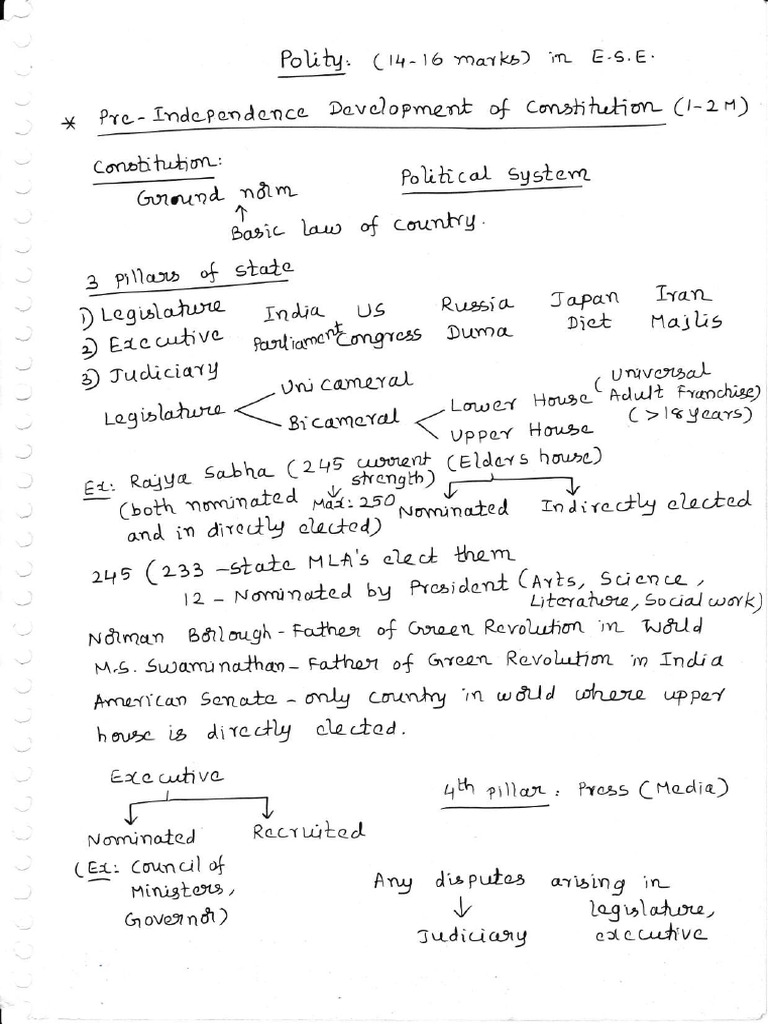 Polity: (14-16 marks) in E.S.E.
* Pre-Independence Development of Constitution (1-2M)
Constitution:
Political System
Ground norm
↑
Basic law of country.
3 pillars of state
1) Legislature India US Russia Japan Iran
2) Executive Parliament Congress Duma Diet Majlis
3) Judiciary
Legislature Unicameral
Bicameral Lower House (Universal Adult Franchise) (>18 years)
Upper House
Ex: Rajya Sabha (245 current strength) (Elders house)
↓ Max: 250
(both nominated and in directly elected)
Nominated Indirectly elected
245 (233 - state MLA's elect them
12 - Nominated by President (Arts, Science,
Literature, Social work)
Norman Borlough - Father of Green Revolution in World
M.S. Swaminathan - Father of Green Revolution in India
American Senate - only country in world where upper
house is directly elected.
Executive
4th pillar: Press (Media)
Nominated Recruited
(Ex: Council of
Ministers,
Governor)
Any disputes arising in
↓ legislature,
Judiciary executive